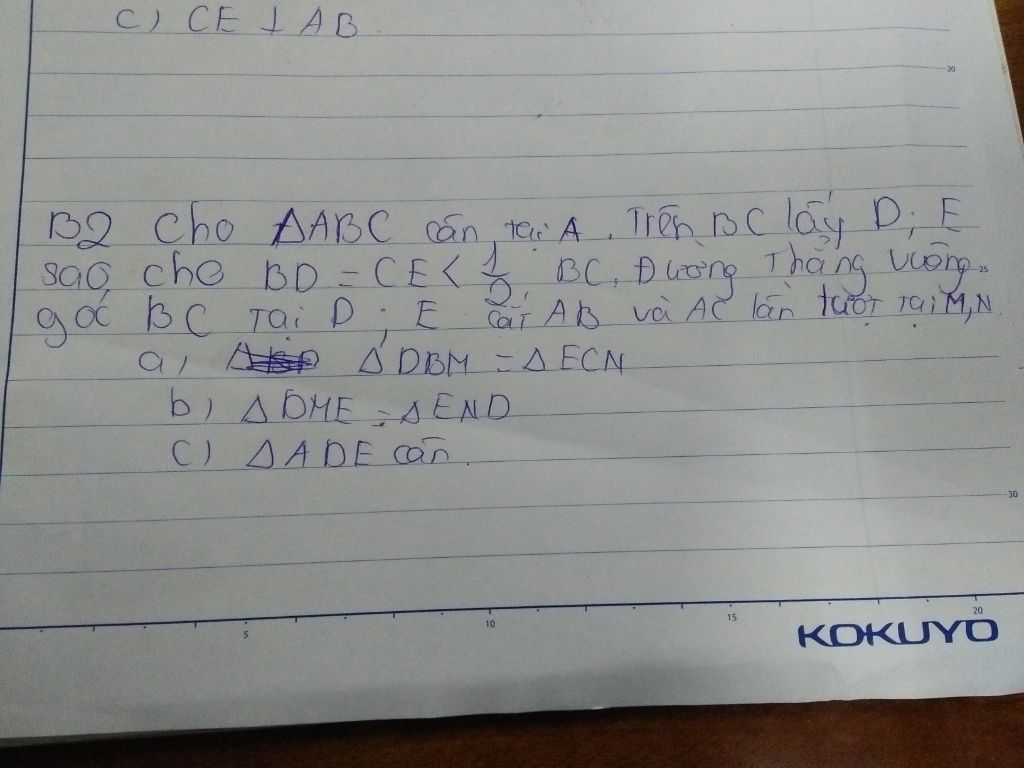 c) CE ⊥ AB.
20
B2 Cho ΔABC cân tại A. Trên BC lấy D; E
sao cho BD = CE < 1/2 BC. Đường Thẳng vuông
25
góc BC Tại D; E cắt AB và AC lần lượt Tại M, N
a, ΔDBM = ΔECN
b) ΔDME = ΔEND
c) ΔADE cân.
30
5 10 15 20
KOKUYO